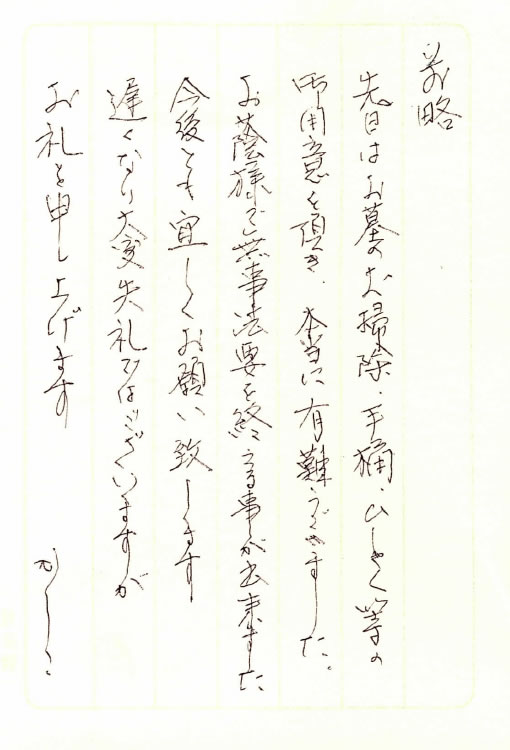 前略
先日はお墓のお掃除、手桶、ひしゃく等の
御用意を頂き、本当に有難うございました。
お蔭様で無事法要を終える事が出来ました
今後とも宜しくお願い致します
遅くなり大変失礼ではございますが
お礼を申し上げます
かしこ